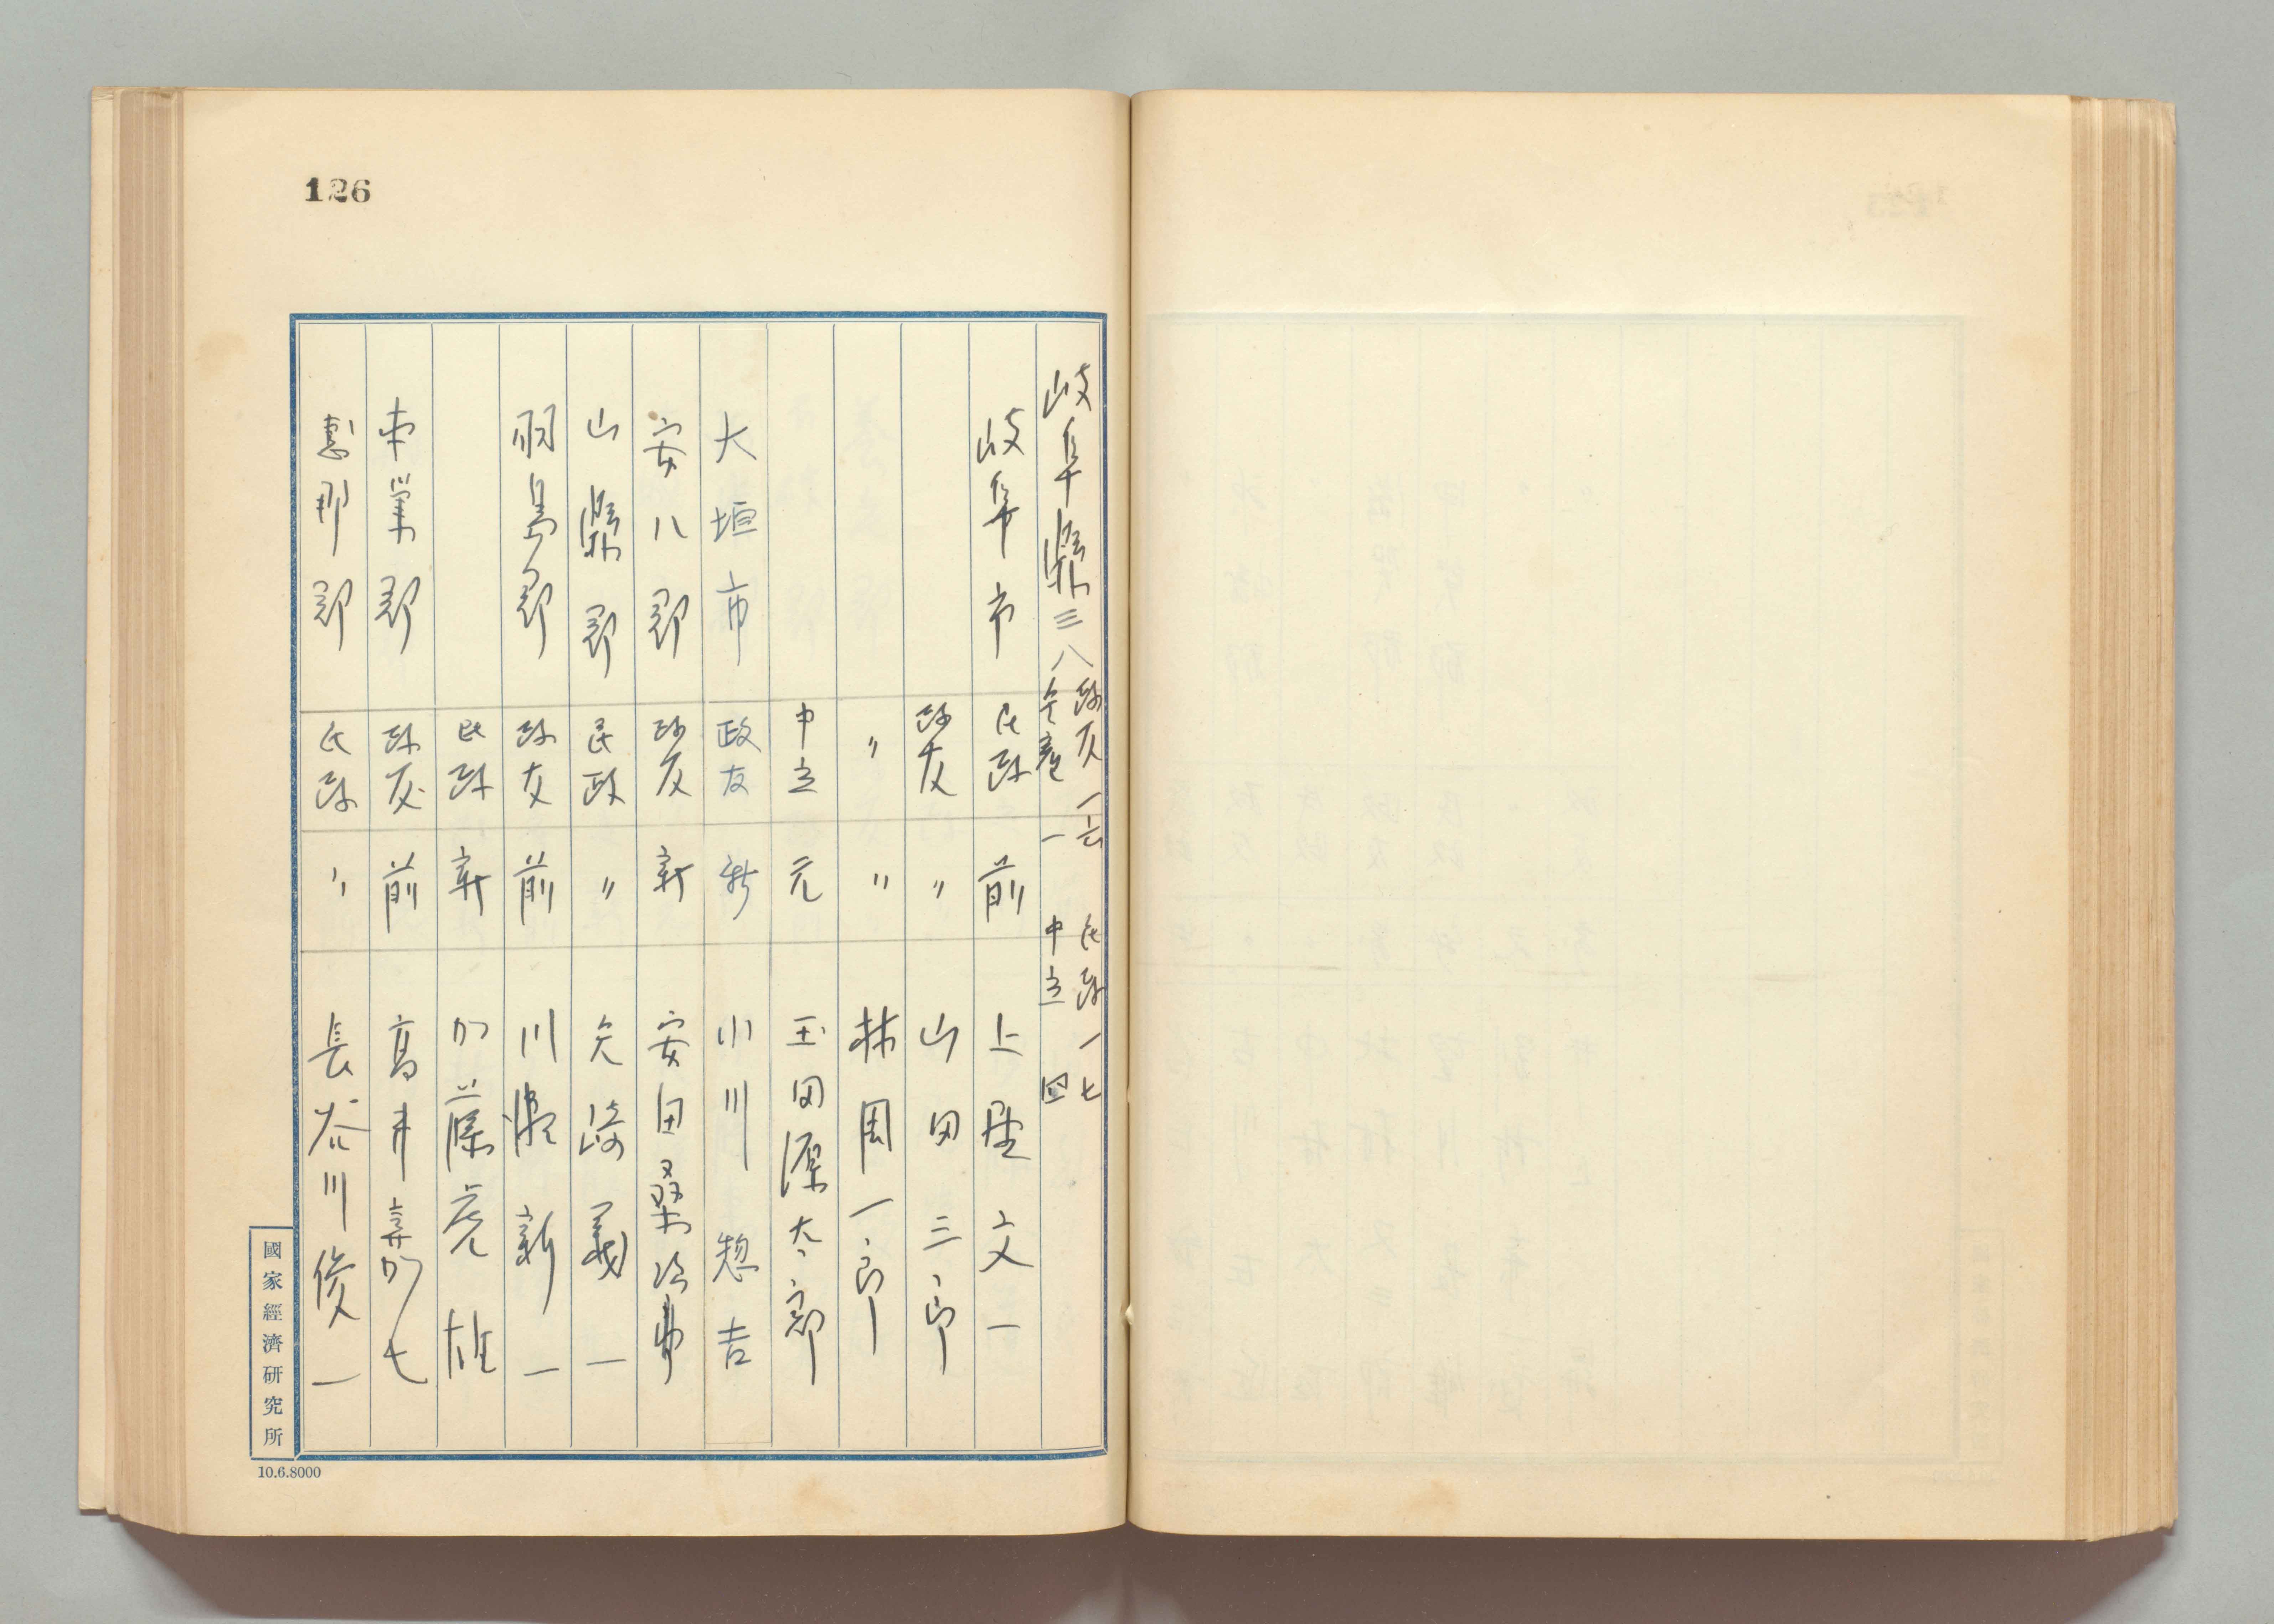 126
岐阜縣三八 政友一六 民政一七
全產一 中立四
岐阜市 民政 前 上埜文一
政友 〃 山田三郎
〃 〃 林周一郎
中立 元 玉田源太郎
大垣市 政友 新 小川惣吉
安八郡 政友 新 安田桑次
山縣郡 民政 〃 矢崎義一
羽島郡 政友 前 川瀬新一
民政 新 加藤虎雄
本巣郡 政友 前 高井嘉七
恵那郡 民政 〃 長谷川俊一
國家經濟研究所
10.6.8000